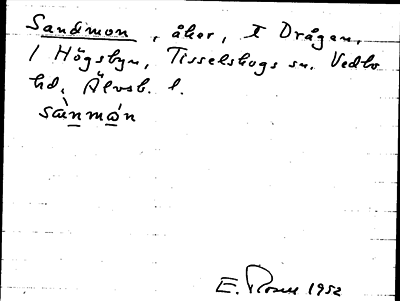 Sandmon, åker, I Drågen,
1 Högsbyn, Tisselskogs sn. Vedbo
hd, Älvsb. l.
sànmån
E. Rosell 1952